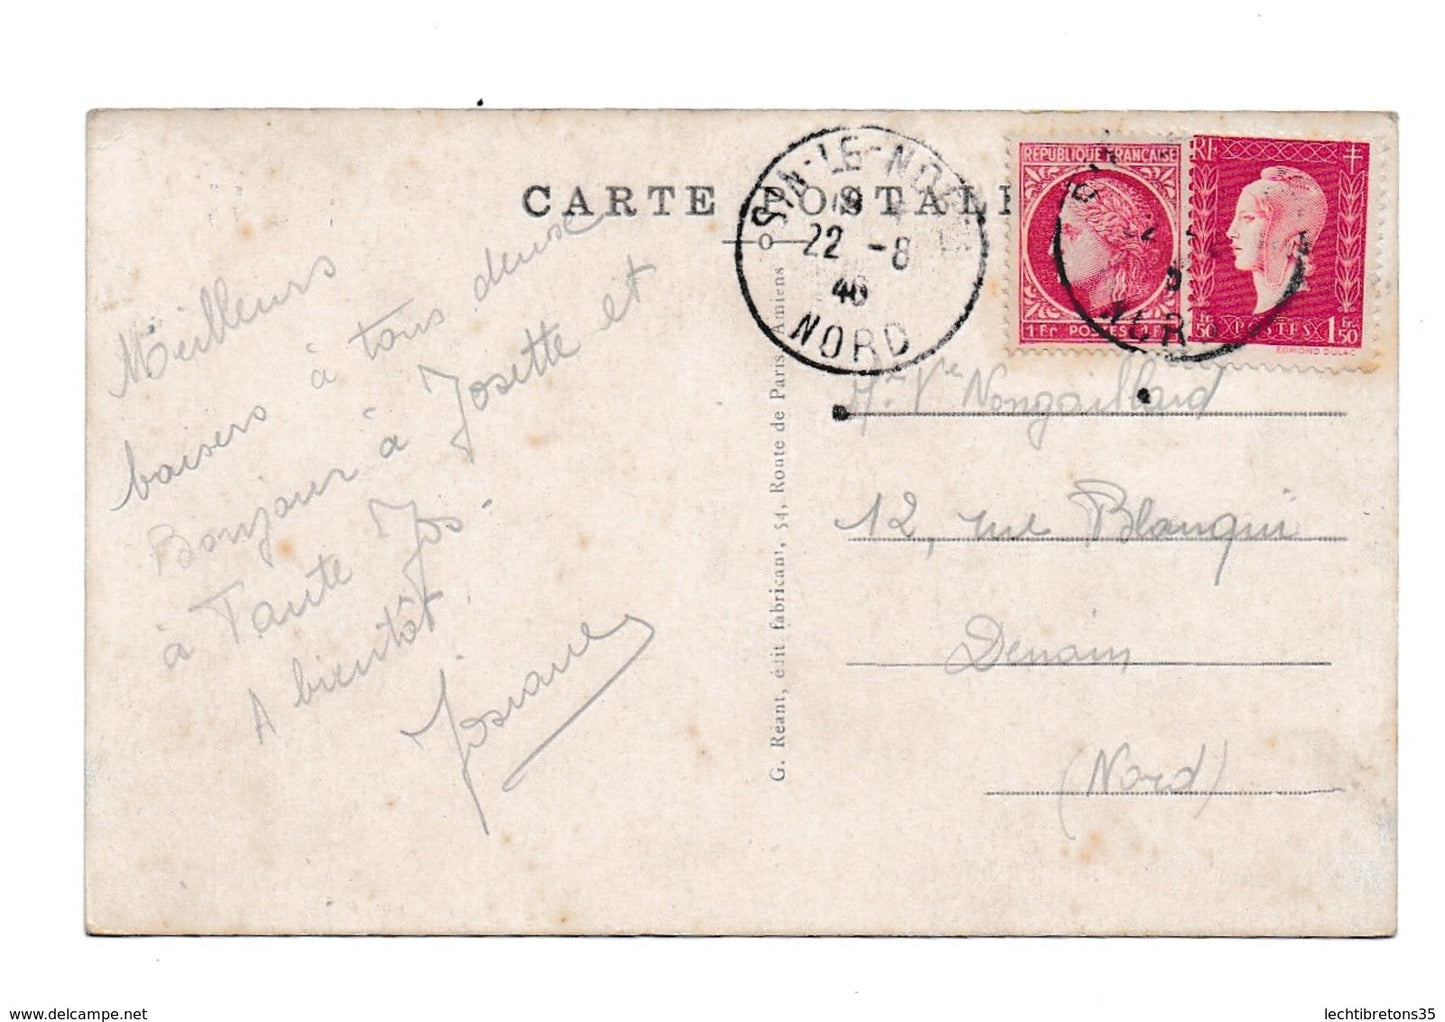 CARTE POSTALE
SIN-LE-NOBLE
18
22 -8
46
NORD
REPUBLIQUE FRANÇAISE
1Fr POSTES 1Fr
RF
Fr. 50 POSTES 1Fr. 50
EDMOND DULAC
22
NORD
Meilleurs
baisers à tous deux
Bonjour à Josette et
à Tante Jos-
A bientôt
Josiane
G. Réant, édit fabricant, 54, Route de Paris, Amiens
Mme Vve Nongaillard
12, rue Blanqui
Denain
(Nord)
www.delcampe.net
lechtibretons35